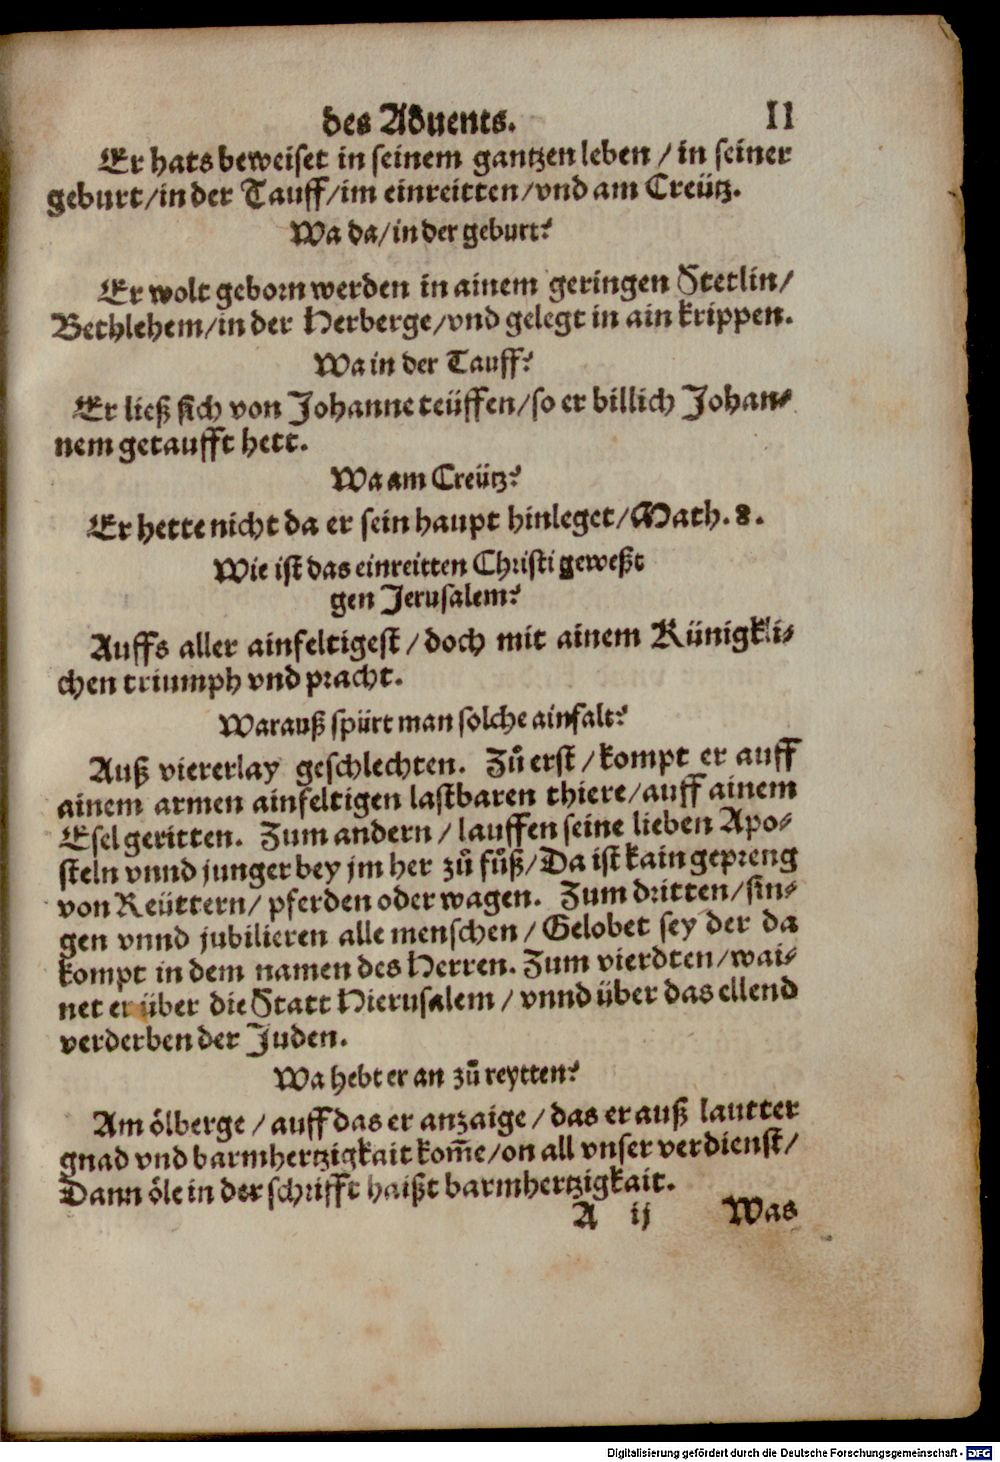 des Aduents. II
Er hats beweiset in seinem gantzen leben / in seiner
geburt/in der Tauff/im einreitten/vnd am Creütz.
Wa da/in der geburt?
Er wolt geborn werden in ainem geringen Stetlin/
Bethlehem/in der Herberge/vnd gelegt in ain krippen.
Wa in der Tauff?
Er ließ sich von Johanne teüffen/so er billich Johan-
nem getaufft hett.
Wa am Creütz?
Er hette nicht da er sein haupt hinleget/Math. 8.
Wie ist das einreitten Christi geweßt
gen Jerusalem?
Auffs aller ainfeltigest / doch mit ainem Künigkli-
chen triumph vnd pracht.
Warauß spürt man solche ainfalt?
Auß viererlay geschlechten. Zů erst / kompt er auff
ainem armen ainfeltigen lastbaren thiere/auff ainem
Esel geritten. Zum andern / lauffen seine lieben Apo-
steln vnnd junger bey jm her zů fůß/Da ist kain gepreng
von Reüttern/ pferden oder wagen. Zum dritten/sin-
gen vnnd jubilieren alle menschen / Gelobet sey der da
kompt in dem namen des Herren. Zum vierdten/wai-
net er über die Statt Hierusalem / vnnd über das ellend
verderben der Juden.
Wa hebt er an zů reytten?
Am ölberge / auff das er anzaige / das er auß lautter
gnad vnd barmhertzigkait kom̄e/on all vnser verdienst/
Dann öle in der schrifft haißt barmhertzigkait.
A ij Was
Digitalisierung gefördert durch die Deutsche Forschungsgemeinschaft - DFG